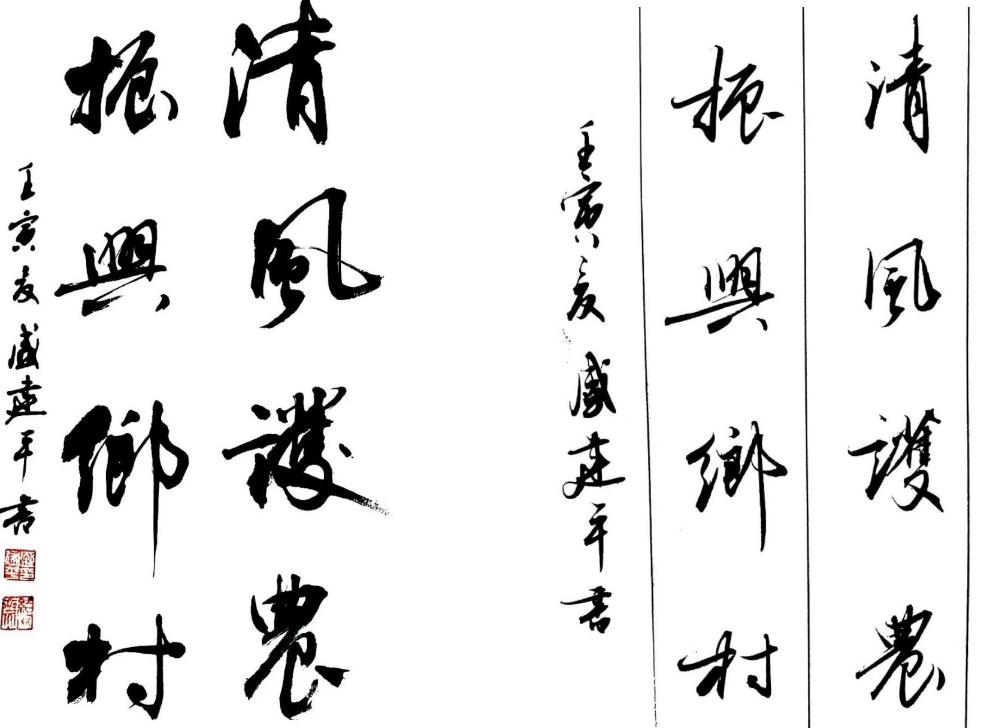 清風護農
振興鄉村
壬寅夏盛建平書
清風護農
振興鄉村
壬寅夏盛建平書